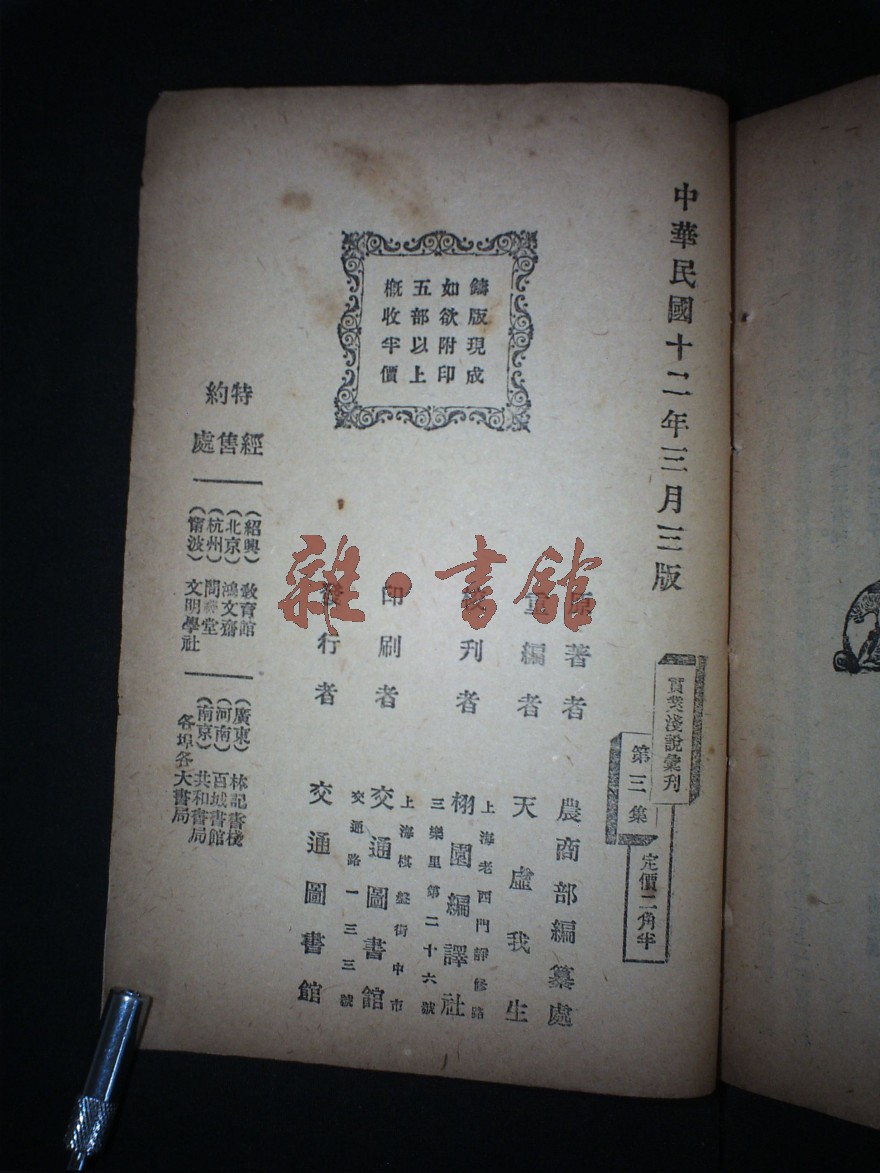 中華民國十二年三月三版
實業淺說彙刊
第三集
定價二角半
鑄版現成
如欲附印
五部以上
概收半價
原著者 農商部編纂處
重編者 天虛我生
上海老西門靜修路
三樂里第二十六號
校刊者 栩園編譯社
上海棋盤街中市
交通路一三三號
印刷者 交通圖書館
發行者 交通圖書館
特約
經售處
(紹興) 教育館
(北京) 鴻文齋
(杭州) 問堂
(甯波) 文明學社
(廣東) 林記書棧
(河南) 百城書館
(南京) 共和書局
各埠各大書局
雜·書館